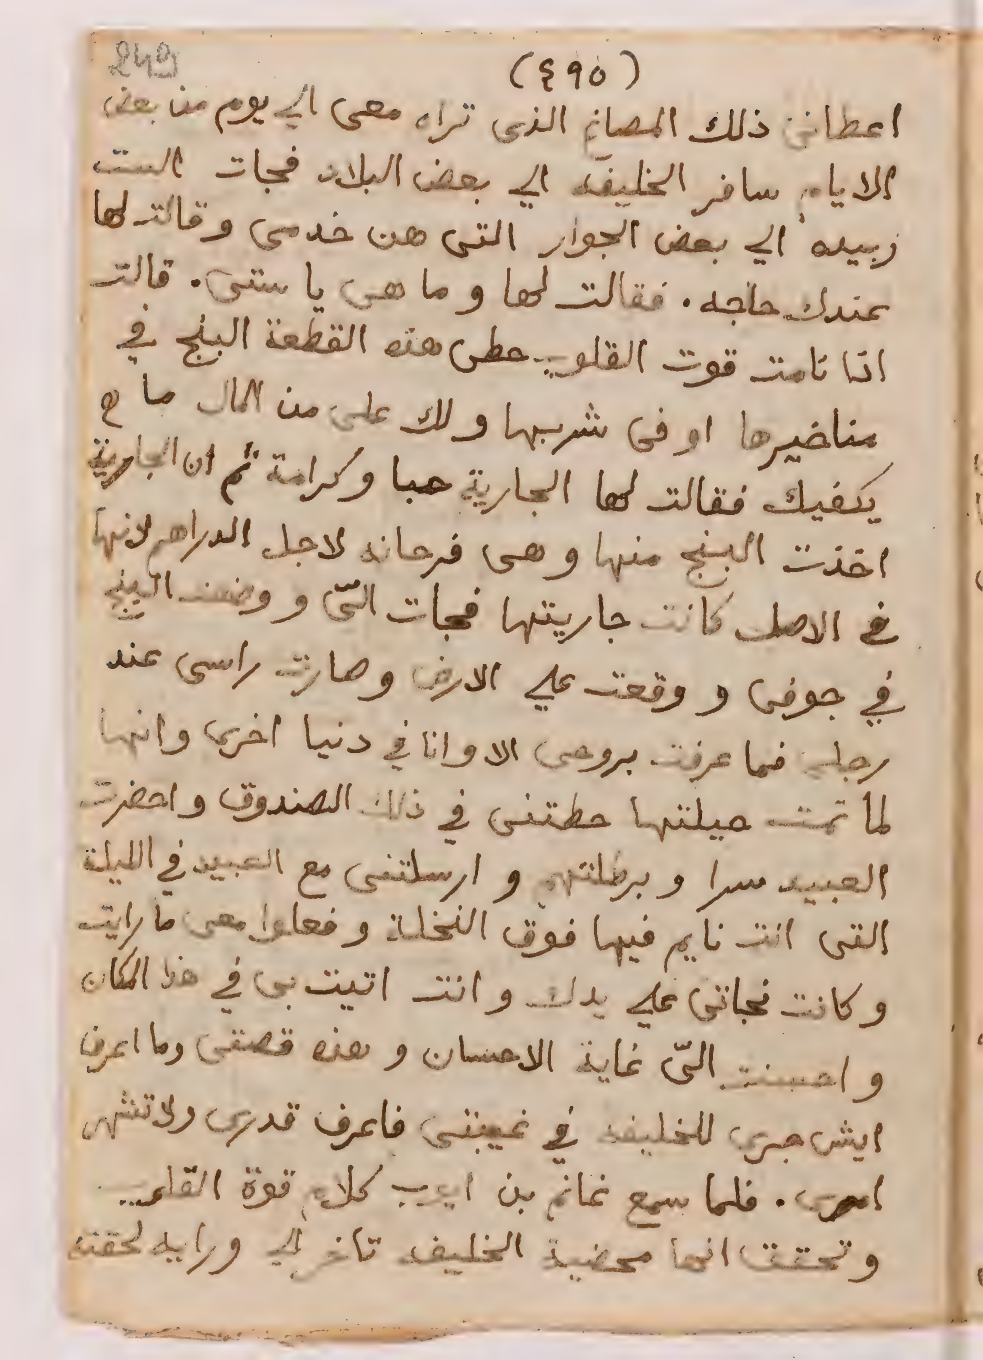 249
(٤٩٥)
اعطاني ذلك المصاغ الذى تراه معى الي يوم من بعض
الايام سافر الخليفه الي بعض البلاد فجات الست
زبيده الي بعض الجوار التى هن خدمى وقالت لها
عندك حاجه . فقالت لها و ما هى يا ستى . قالت
اذا نامت قوت القلوب حطى هذه القطعة البنج في
مناضيرها او فى شربها و لك على من المال ما
يكفيك فقالت لها الجارية حبا و كرامة ثم ان الجارية
اخذت البنج منها و هى فرحانه لاجل الدراهم لانها
في الاصل كانت جاريتها فجات اليّ و وضعت البنج
في جوفى و وقعت علي الارض و صارت راسى عند
رجلي فما عرفت بروحى الا وانا في دنيا اخرى وانها
لما تمت حيلتها حطتنى في ذلك الصندوق و احضرت
العبيد سرا و برطلتهم و ارسلتنى مع العبيد في الليلة
التى انت نايم فيها فوق النخلة و فعلوا معى ما رايت
و كانت نجاتى علي يدك و انت اتيت بى في هذا المكان
و احسنت اليّ غاية الاحسان و هذه قصتى وما اعرف
ايش جرى للخليفه في غيبتى فاعرف قدرى ولا تشهر
امرى . فلما سمع غانم بن ايوب كلام قوة القلوب
و تحقق انها محضية الخليفه تاخر الي ورايه لحقته